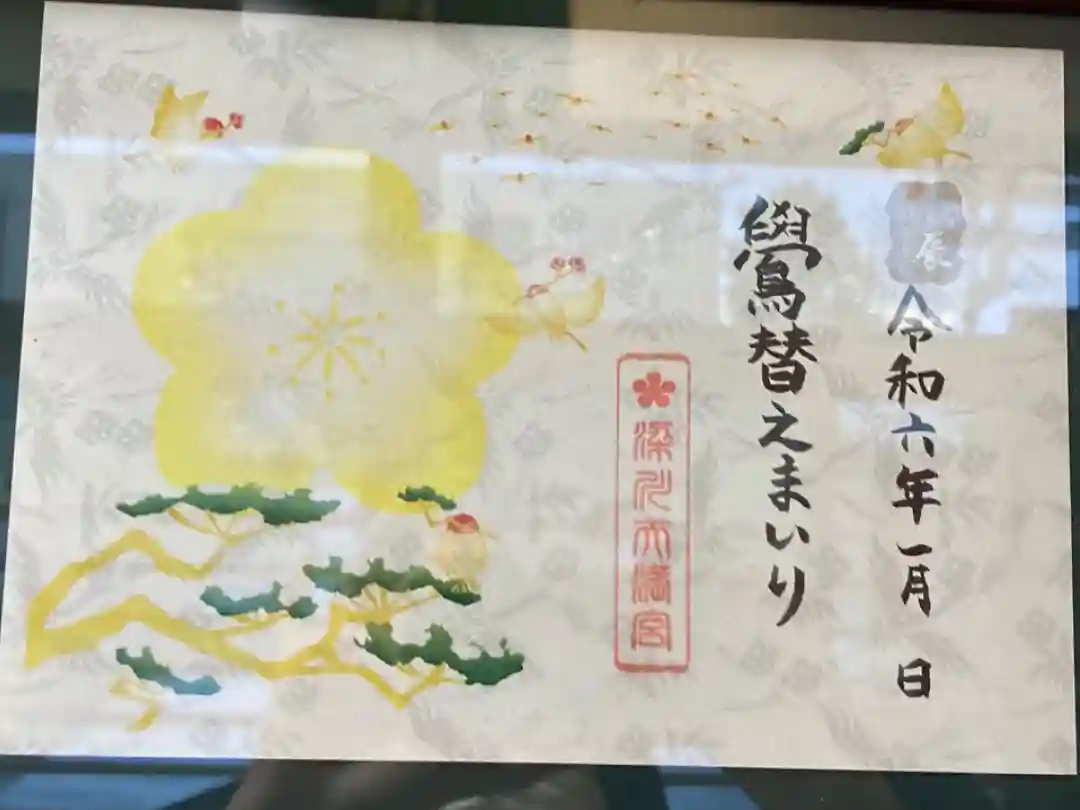 辰
令和六年一月 日
鷽替えまいり
深川天満宮